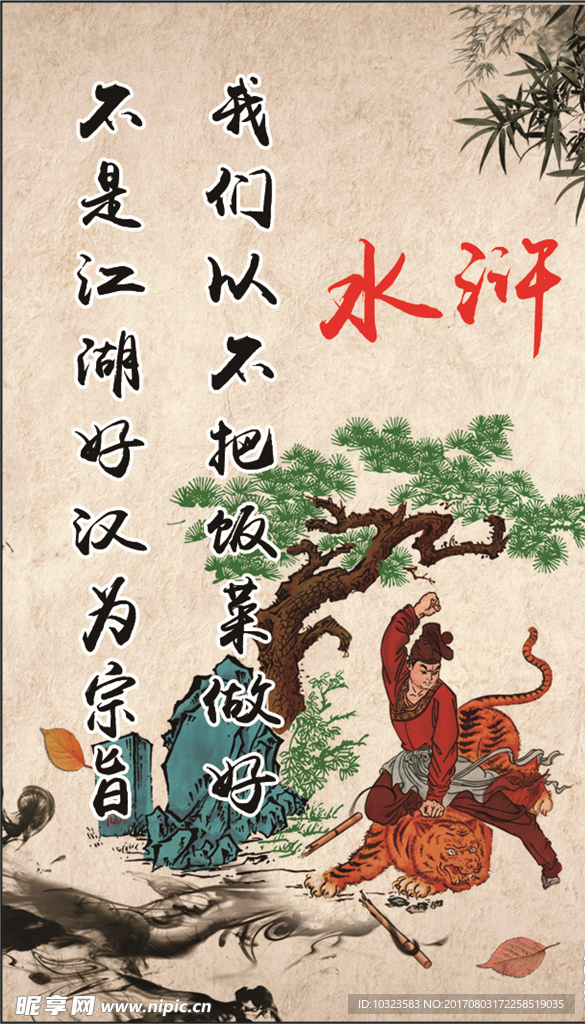 水浒
我们以不把饭菜做好
不是江湖好汉为宗旨
昵享网 www.nipic.cn
ID:10323583 NO:20170803172258519035